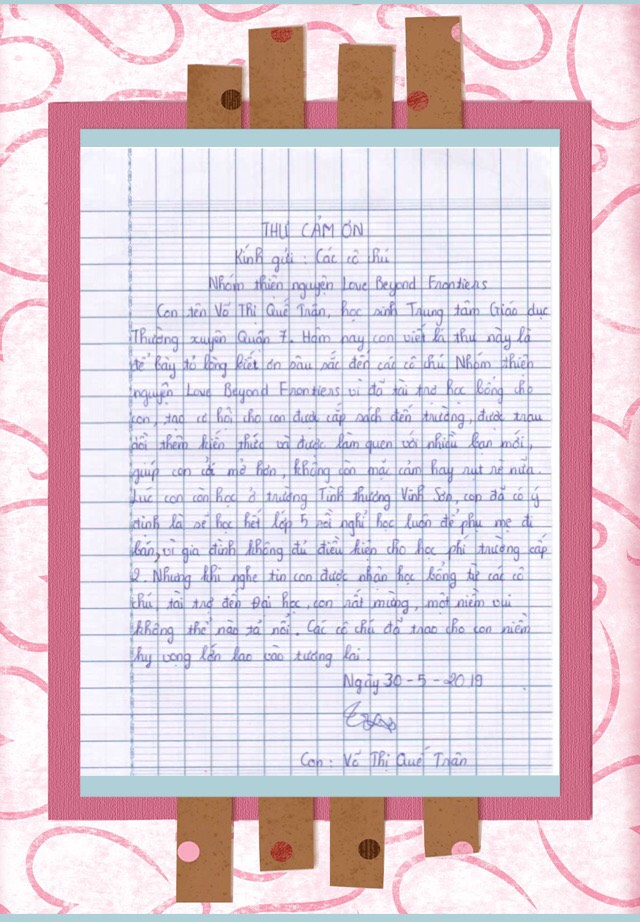 THƯ CẢM ƠN
Kính gửi : Các cô chú
Nhóm thiện nguyện Love Beyond Frontiers
Con tên Võ Thị Quế Trân, học sinh Trung tâm Giáo dục
Thường xuyên Quận 7. Hôm nay con viết lá thư này là
để bày tỏ lòng biết ơn sâu sắc đến các cô chú Nhóm thiện
nguyện Love Beyond Frontiers vì đã tài trợ học bổng cho
con, tạo cơ hội cho con được cắp sách đến trường, được trau
dồi thêm kiến thức và được làm quen với nhiều bạn mới,
giúp con cởi mở hơn, không còn mặc cảm hay rụt rè nữa.
Lúc con còn học ở trường Tình thương Vinh Sơn, con đã có ý
định là sẽ học hết lớp 5 rồi nghỉ học luôn để phụ mẹ đi
bán, vì gia đình không đủ điều kiện cho học phí trường cấp
2. Nhưng khi nghe tin con được nhận học bổng từ các cô
chú, tài trợ đến Đại học, con rất mừng, một niềm vui
không thể nào tả nổi. Các cô chú đã trao cho con niềm
hy vọng lớn lao vào tương lai.
Ngày 30 - 5 - 2019
Con : Võ Thị Quế Trân